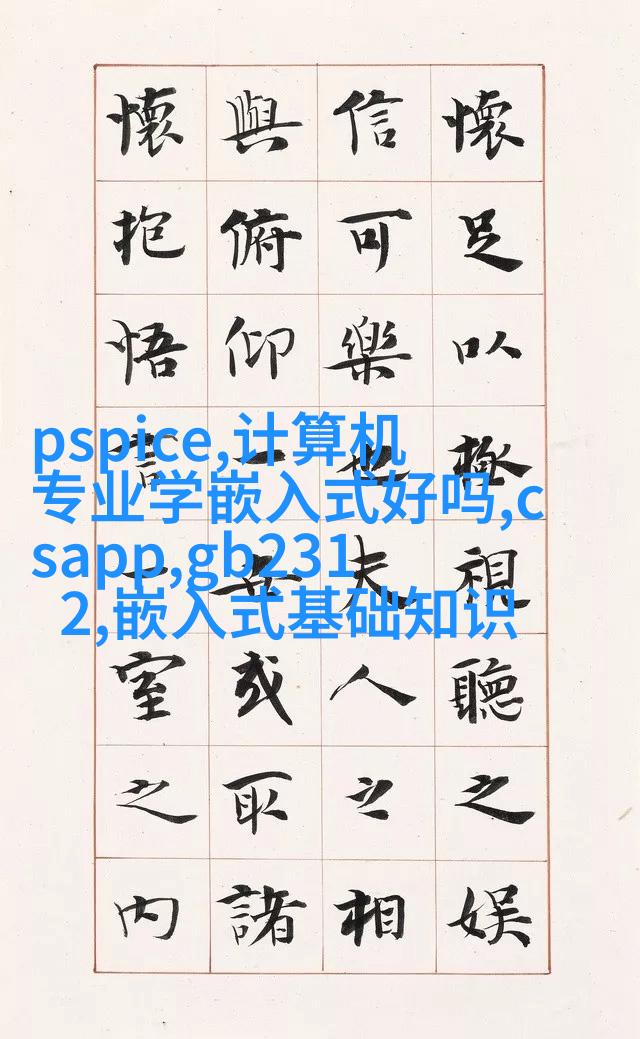 懷足以極視聽之娛
信可樂也夫人之相
與俯仰一世或取諸
懷抱悟言一室之內
pspice,计算机
专业学嵌入式好吗,c
sapp,gb231
2,嵌入式基础知识